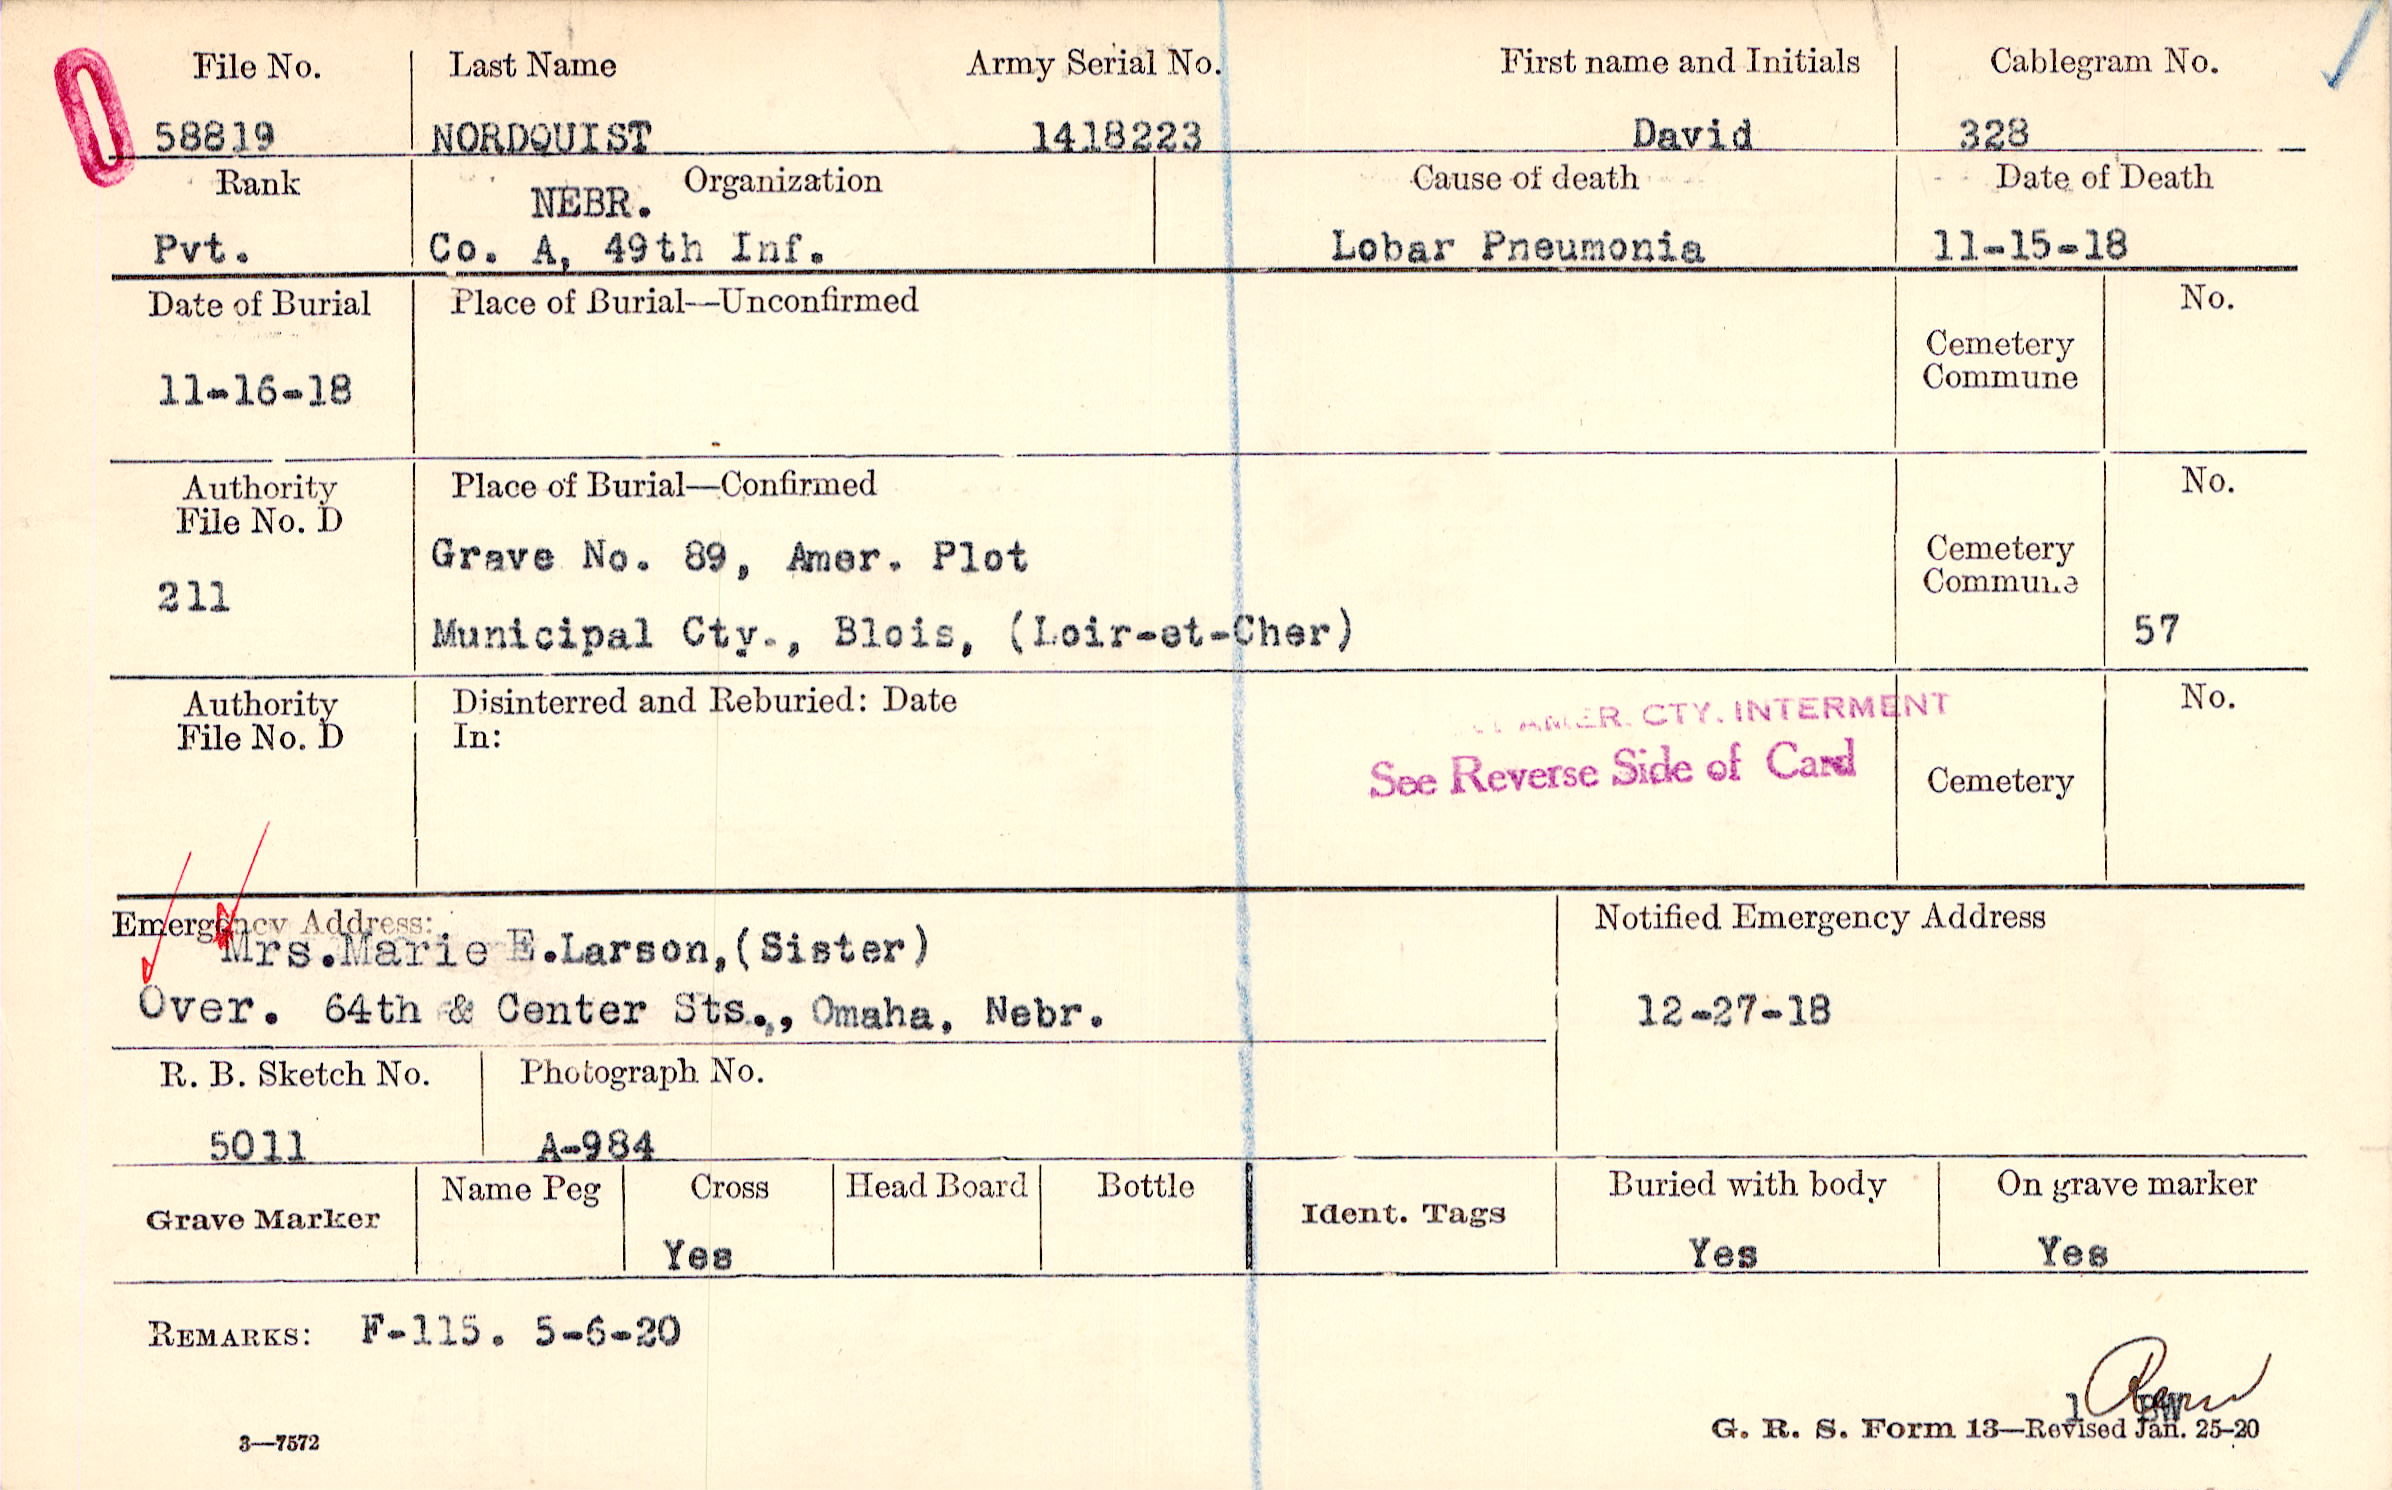 File No. Last Name Army Serial No. First name and Initials Cablegram No.
58819 NORDQUIST 1418223 David 328
Rank Organization Cause of death Date of Death
NEBR.
Pvt. Co. A, 49th Inf. Lobar Pneumonia 11-15-18
Date of Burial Place of Burial—Unconfirmed No.
Cemetery
Commune
11-16-18
Authority Place of Burial—Confirmed No.
File No. D
Grave No. 89, Amer. Plot Cemetery
Commune
211
Municipal Cty., Blois, (Loir-et-Cher) 57
Authority Disinterred and Reburied: Date No.
File No. D In:
AMER. CTY. INTERMENT
See Reverse Side of Card
Cemetery
Emergency Address: Notified Emergency Address
Mrs. Marie E. Larson, (Sister)
Over. 64th & Center Sts., Omaha, Nebr. 12-27-18
R. B. Sketch No. Photograph No.
5011 A-984
Grave Marker Name Peg Cross Head Board Bottle Ident. Tags Buried with body On grave marker
Yes Yes Yes
REMARKS: F-115. 5-6-20
3—7572 G. R. S. Form 13—Revised Jan. 25-20